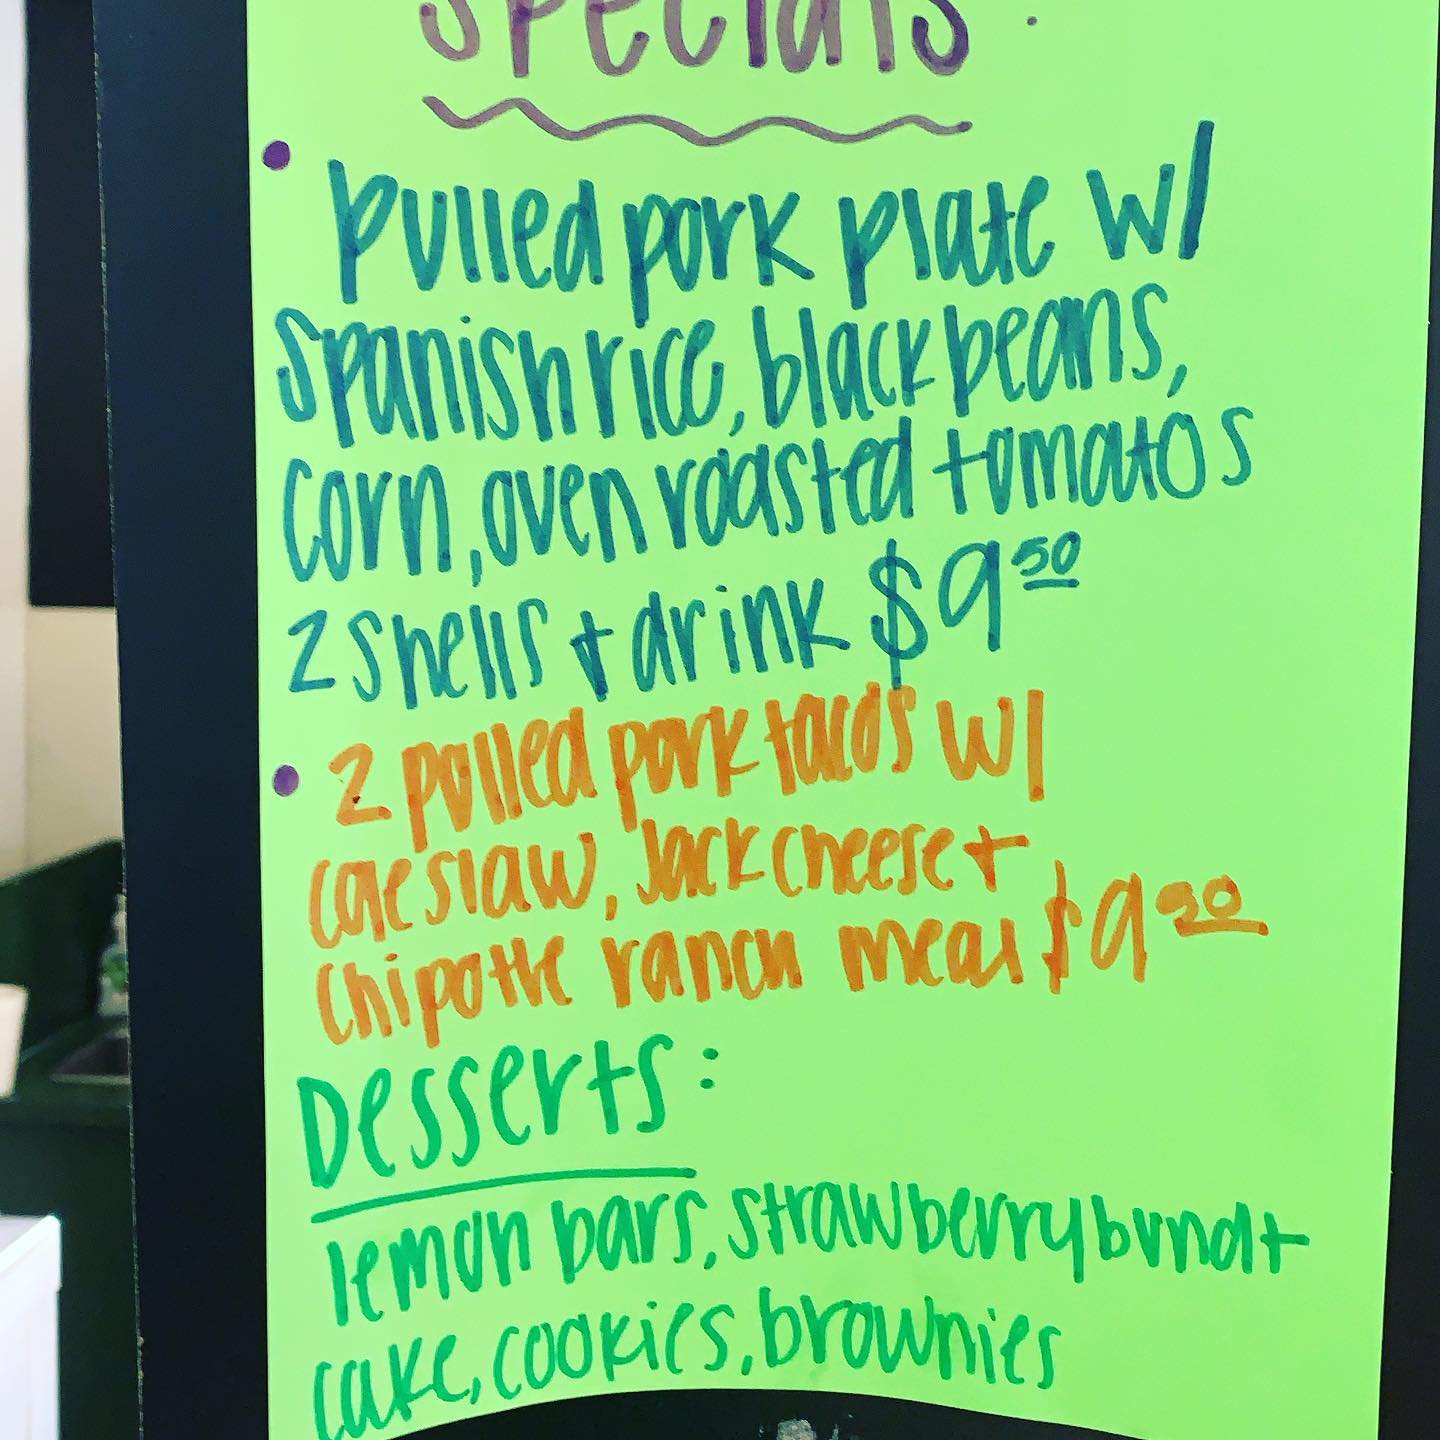 Specials:
• Pulled pork plate w/
Spanish rice, black beans,
corn, oven roasted tomatos
2 shells + drink $9.50
• 2 pulled pork tacos w/
coleslaw, Jack cheese +
chipotle ranch meal $9.50
Desserts:
lemon bars, strawberry bundt
cake, cookies, brownies